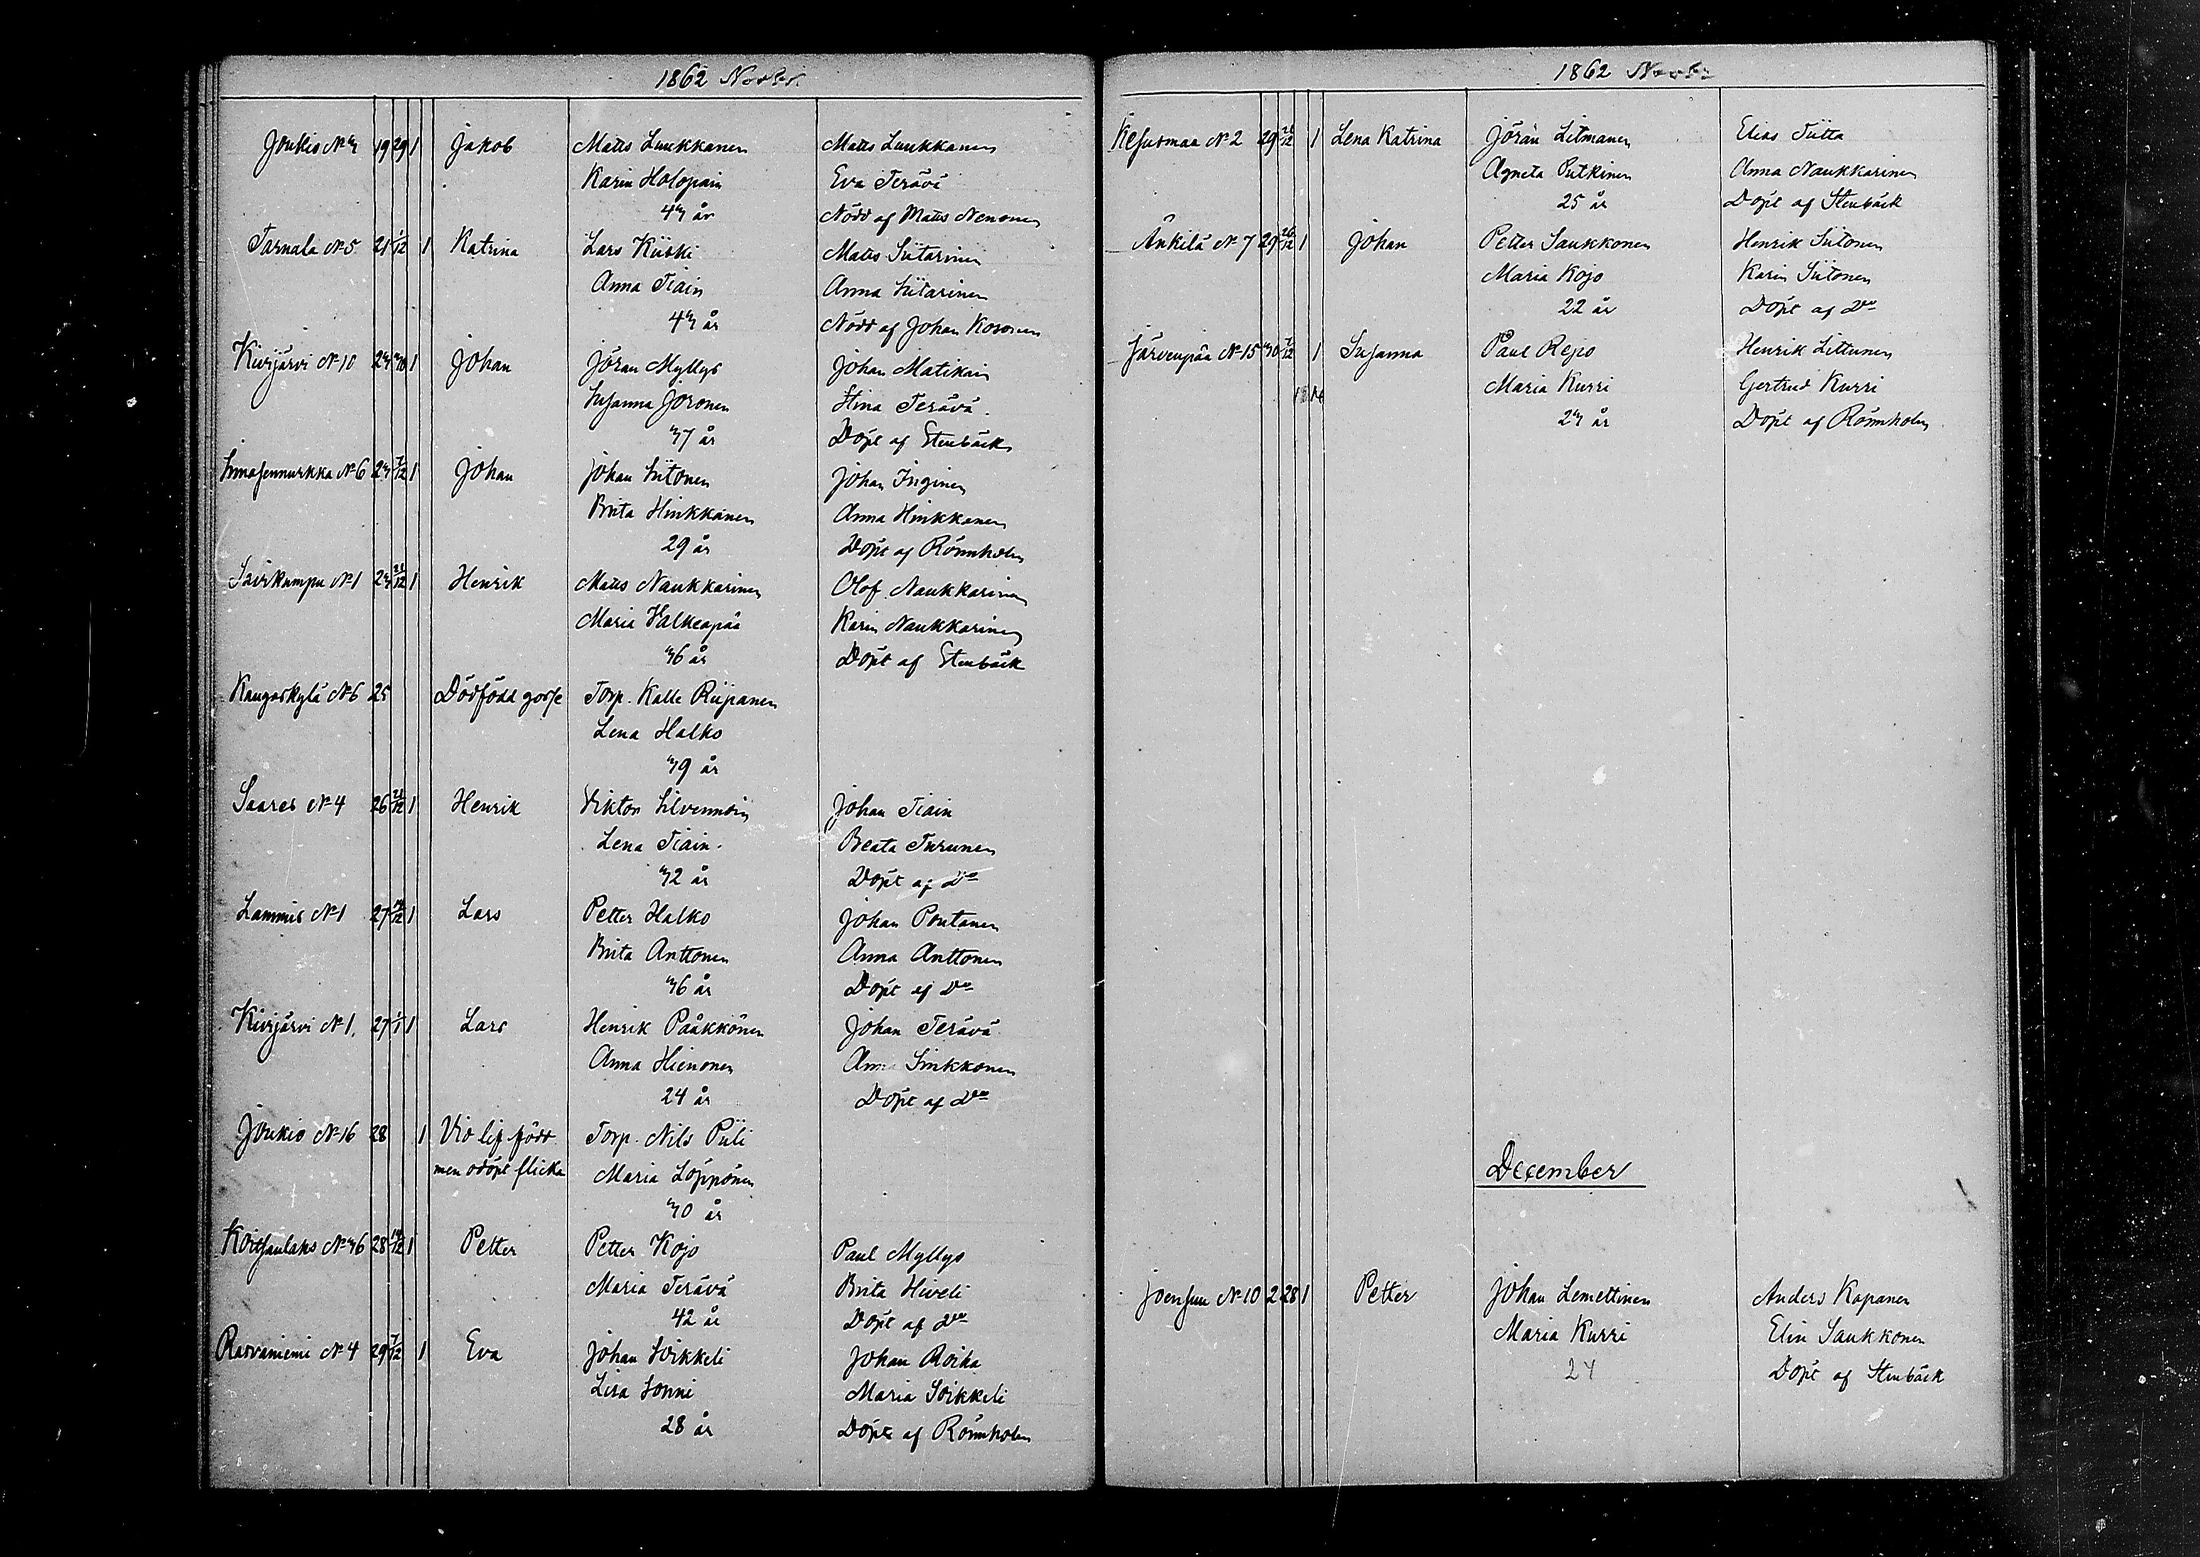 1862 Novbr.
Joukio No 3 19 29 1 Jakob Matts Luukkanen Matts Luukkanen
Karin Holopain Eva Terävä
43 år Nödd af Matts Nenonen
Tarnala No 5 21 1/12 1 Katrina Lars Kiiski Matts Siitarinen
Anna Tiain Anna Siitarinen
43 år Nödd af Johan Kosonen
Kivijärvi No 10 23 30 1 Johan Jöran Myllys Johan Matikain
Susanna Joronen Stina Terävä
37 år Döpt af Stenbäck
No 6 23 7/12 1 Johan Johan Siitonen Johan Inginen
Brita Hinkkanen Anna Hinkkanen
29 år Döpt af Römnholm
Savikumpu No 1 23 21/12 1 Henrik Matts Naukkarinen Olof Naukkarinen
Maria Valkeapää Karin Naukkarinen
36 år Döpt af Stenbäck
Kangaskylä No 6 25 Dödfödd gosse Torp. Kalle Riipanen
Lena Halko
39 år
Saares No 4 26 26/12 1 Henrik Viktor Silvennoin Johan Tiain
Lena Tiain Beata Turunen
32 år Döpt af Do
Lammis No 1 27 14/12 1 Lars Petter Halko Johan Poutanen
Brita Anttonen Anna Anttonen
36 år Döpt af Do
Kivijärvi No 1. 27 1/1 1 Lars Henrik Pääkkönen Johan Terävä
Anna Hienonen Anna Sinkkonen
24 år Döpt af Do
Joukio No 16 28 1 Vid lif född Torp. Nils Puli
men odöpt flicka Maria Löppönen
30 år
Koitsanlaks No 36 28 14/12 1 Petter Petter Kojo Paul Myllys
Maria Terävä Brita Hiveli
42 år Döpt af do
Rasvaniemi No 4 29 7/12 1 Eva Johan Soikkeli Johan Roiha
Lisa Sonni Maria Soikkeli
28 år Döpt af Römnholm
1862 Novbr
Kesusmaa No 2 29 26/12 1 Lena Katrina Jöran Litmanen Elias Tiitta
Agneta Putkinen Anna Naukkarinen
25 år Döpt af Stenbäck
Änkilä No 7 29 26/12 1 Johan Petter Saukkonen Henrik Siitonen
Maria Kojo Karin Siitonen
22 år Döpt af Do
Järvenpää No 15 30 7/12 1 Susanna Paul Rejo Henrik Littunen
Maria Kurri Gertrud Kurri
23 år Döpt af Römnholm
December
Joensuu No 10 2 28 1 Petter Johan Lemettinen Anders Kapanen
Maria Kurri Elin Saukkonen
24 Döpt af Stenbäck